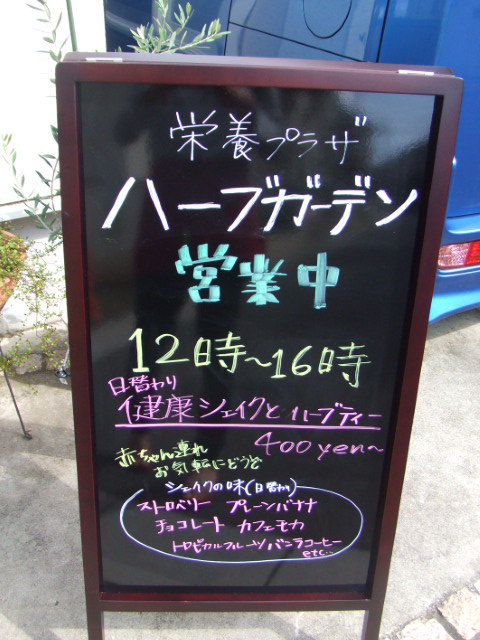 栄養プラザ
ハーブガーデン
営業中
12時～16時
日替わり
健康シェイクとハーブティー
400yen～
赤ちゃん連れ
お気転にどうぞ
シェイクの味(日替わり)
ストロベリー プレーンバナナ
チョコレート カフェモカ
トロピカルフルーツ バニラコーヒー
etc...